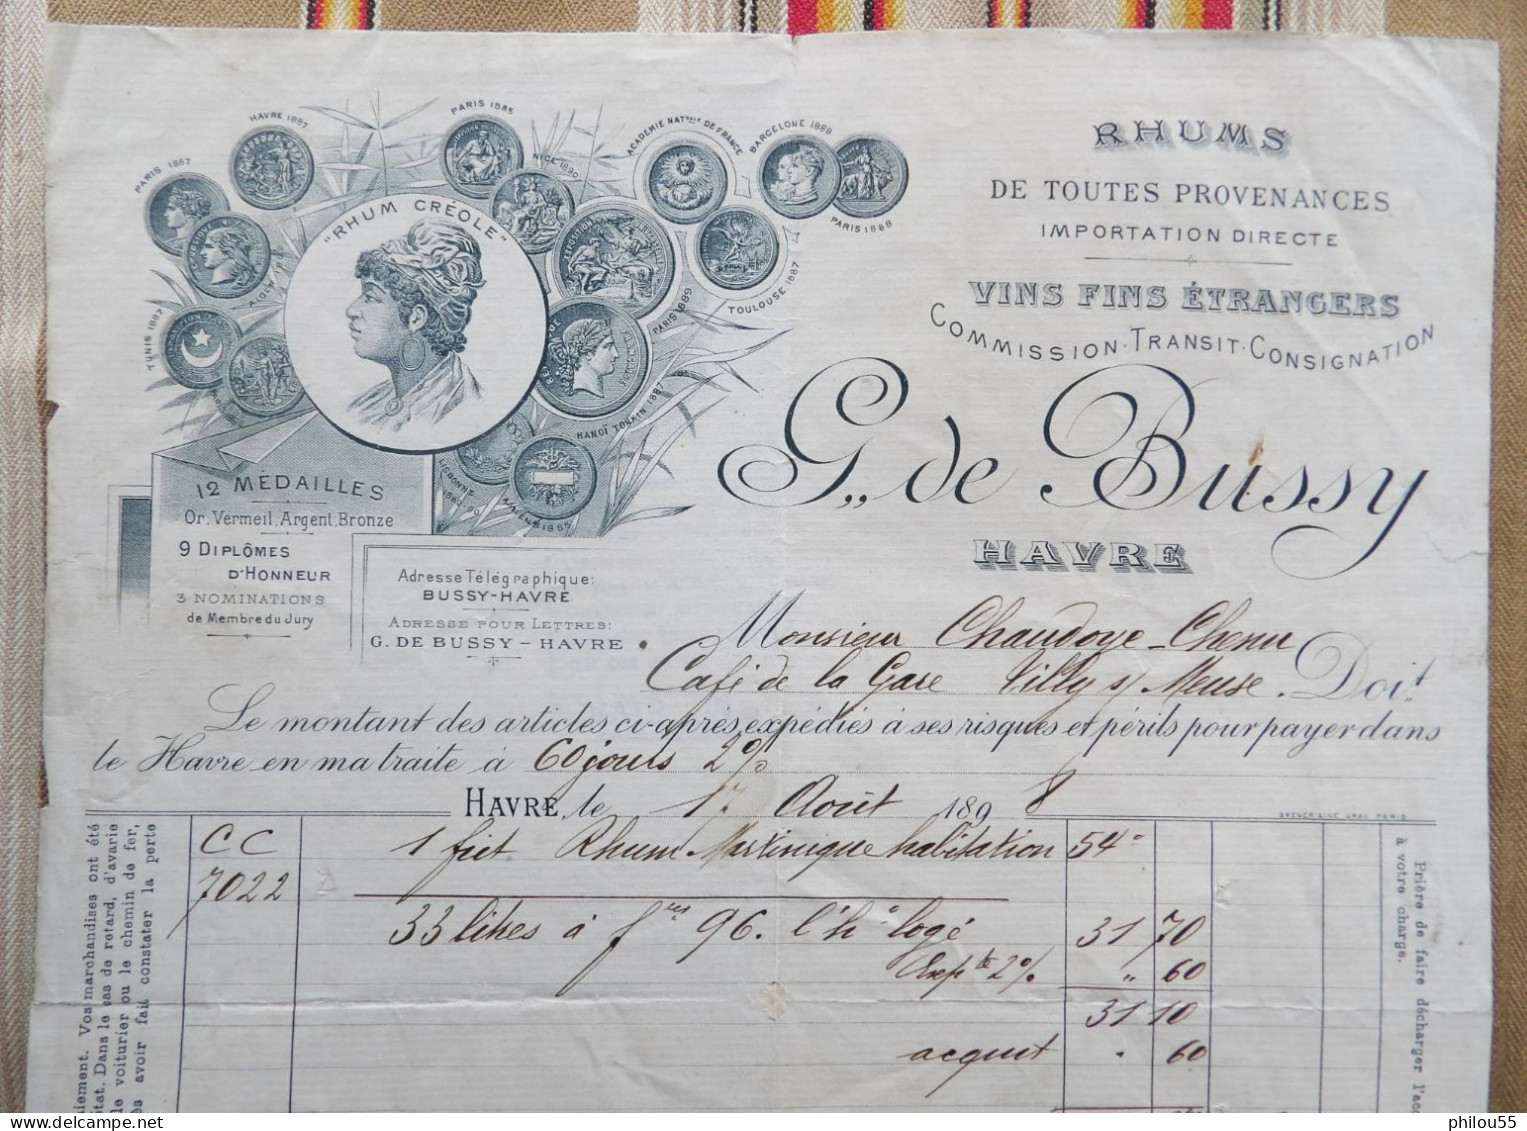 PARIS 1887
HAVRE 1887
PARIS 1885
NICE 1890
ACADEMIE NATION.LE DE FRANCE
BARCELONE 1889
PARIS 1888
TOULOUSE 1887
PARIS 1889
HANOÏ TONKIN 1887
AMIENS 1885
LISBONNE
TUNIS 1887
"RHUM CRÉOLE"
12 MÉDAILLES
Or, Vermeil, Argent, Bronze
9 DIPLÔMES
D'HONNEUR
3 NOMINATIONS
de Membre du Jury
Adresse Télégraphique:
BUSSY-HAVRE
ADRESSE POUR LETTRES:
G. DE BUSSY - HAVRE
RHUMS
DE TOUTES PROVENANCES
IMPORTATION DIRECTE
VINS FINS ÉTRANGERS
COMMISSION · TRANSIT · CONSIGNATION
G. de Bussy
HAVRE
Monsieur Chaudoye-Chenu
Café de la Gare Tilly s/ Meuse. Doit
Le montant des articles ci-après expédiés à ses risques et périls pour payer dans
le Havre en ma traite à 60 jours 2%
HAVRE, le 17 Août 1898
CC 1 fût Rhum Martinique habitation 54
7022
33 litres à f 96. l'h° logé 31 70
Escpte 2% " 60
31 10
acquit " 60
Vos marchandises ont été
état. Dans le cas de retard, d'avarie
le voiturier ou le chemin de fer,
avoir fait constater la perte
Prière de faire décharger l'acq
à votre charge.
philou55